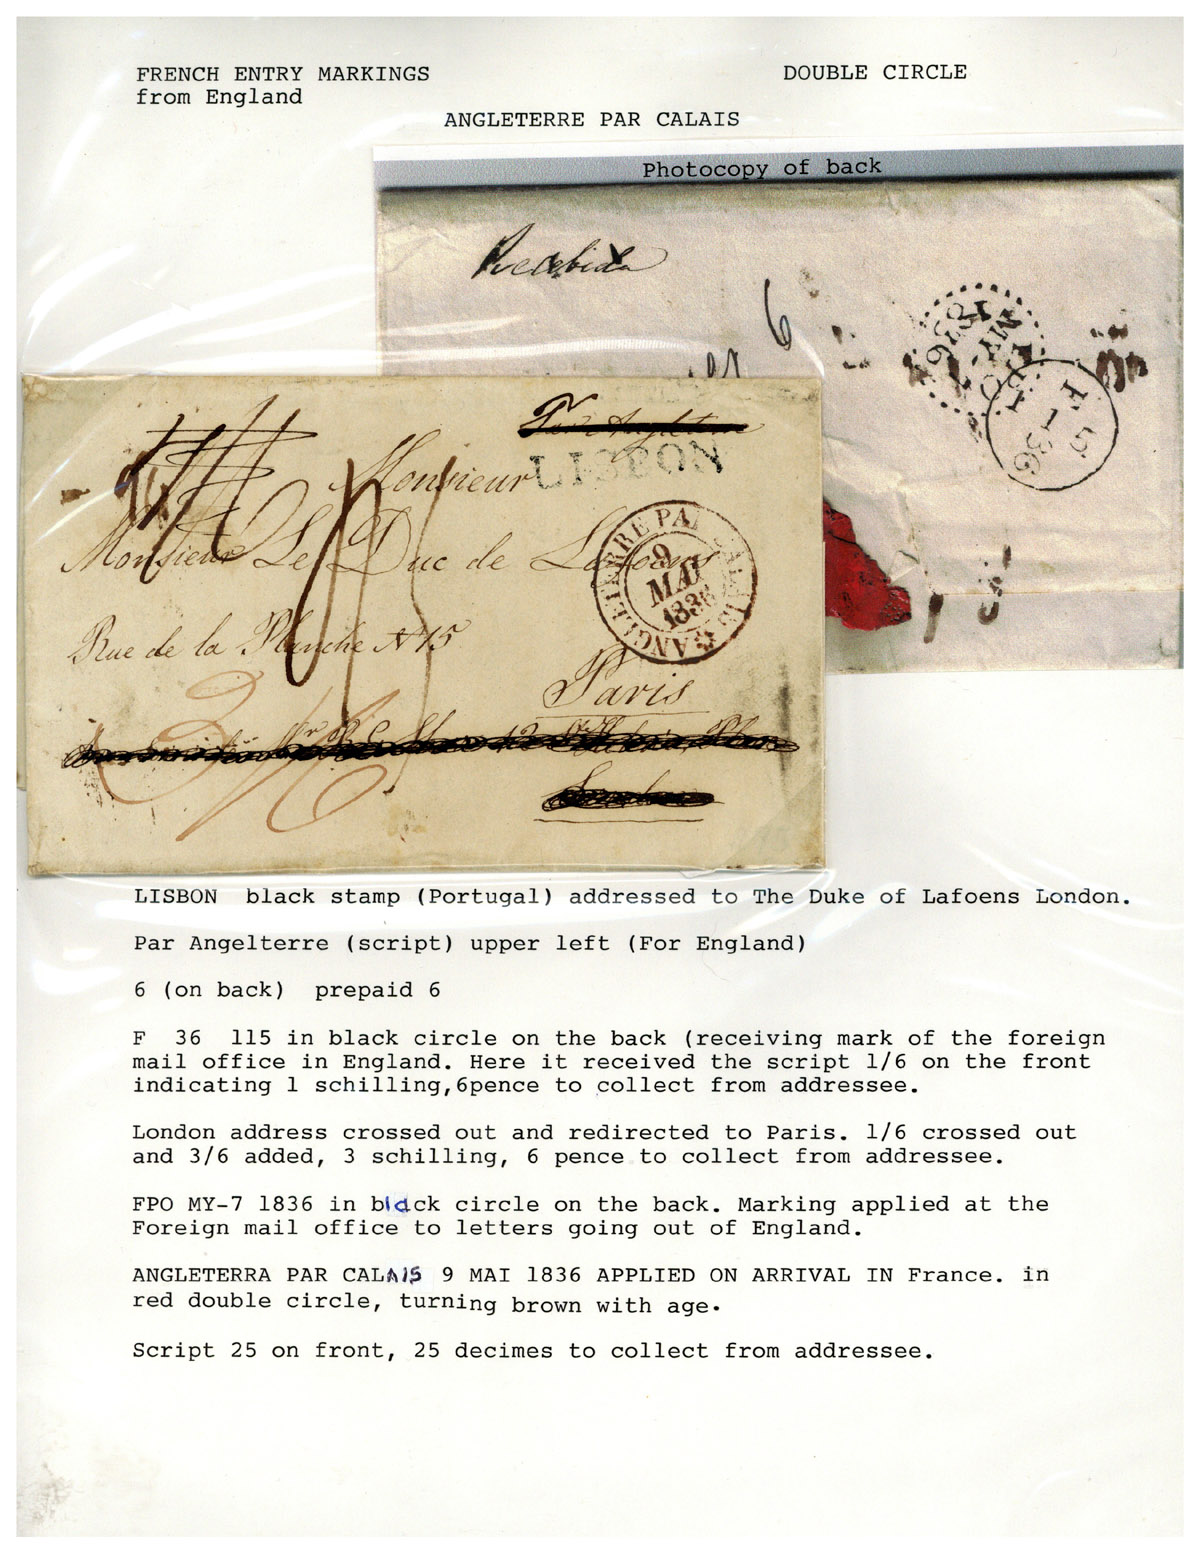 FRENCH ENTRY MARKINGS
from England
DOUBLE CIRCLE
ANGLETERRE PAR CALAIS
Photocopy of back
Recebida
6
MY-7
1836
F 5
1
36
Par Angleterre
LISBON
Monsieur
Monsieur Le Duc de Lafoens
ANGLETERRE PAR CALAIS
9
MAI
1836
Rue de la Planche N 15
Paris
3/6
LISBON black stamp (Portugal) addressed to The Duke of Lafoens London.
Par Angelterre (script) upper left (For England)
6 (on back) prepaid 6
F 36 115 in black circle on the back (receiving mark of the foreign
mail office in England. Here it received the script 1/6 on the front
indicating 1 schilling,6pence to collect from addressee.
London address crossed out and redirected to Paris. 1/6 crossed out
and 3/6 added, 3 schilling, 6 pence to collect from addressee.
FPO MY-7 1836 in black circle on the back. Marking applied at the
Foreign mail office to letters going out of England.
ANGLETERRA PAR CALAIS 9 MAI 1836 APPLIED ON ARRIVAL IN France. in
red double circle, turning brown with age.
Script 25 on front, 25 decimes to collect from addressee.